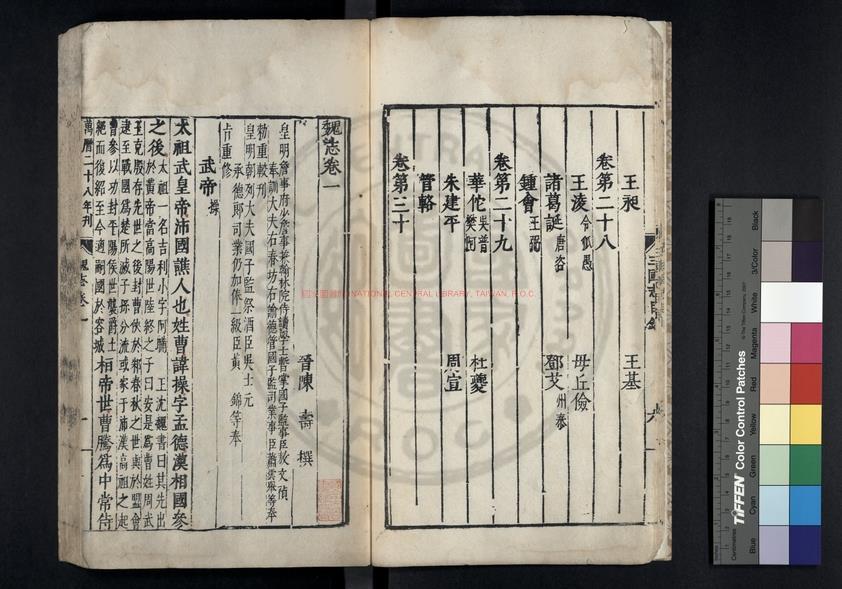 王昶 王基
卷第二十八
王淩 令狐愚 毋丘儉
諸葛誕 唐咨 鄧艾 州泰
鍾會 王弼
卷第二十九
華佗 吳普 樊阿 杜夔
朱建平 周宣
管輅
卷第三十
三國志目錄 六
魏志卷一
晉陳壽撰
皇明詹事府少詹事兼翰林院侍讀學士暫掌國子監事臣敖文禎
奉訓大夫右春坊右諭德管國子監司業事臣蕭雲舉等奉
勑重較刊
皇明朝列大夫國子監祭酒臣吳士元
承德郎司業仍加俸一級臣黃錦等奉
旨重修
武帝 操
太祖武皇帝沛國譙人也姓曹諱操字孟德漢相國參
之後 太祖一名吉利小字阿瞞 王沈魏書曰其先出
於黃帝當高陽世陸終之子曰安是爲曹姓周武
王克殷存先世之後封曹俠於邾春秋之世與於盟會
逮至戰國爲楚所滅子孫分流或家于沛漢高祖之起
曹參以功封平陽侯世襲爵土
絕而復紹至今適嗣國於容城 桓帝世曹騰爲中常侍
萬曆二十八年刊 魏志卷一 一
NATIONAL CENTRAL LIBRARY, TAIWAN, R.O.C.
TIFFEN Color Control Patches
Blue Cyan Green Yellow Red Magenta White 3/Color Black
Centimetres